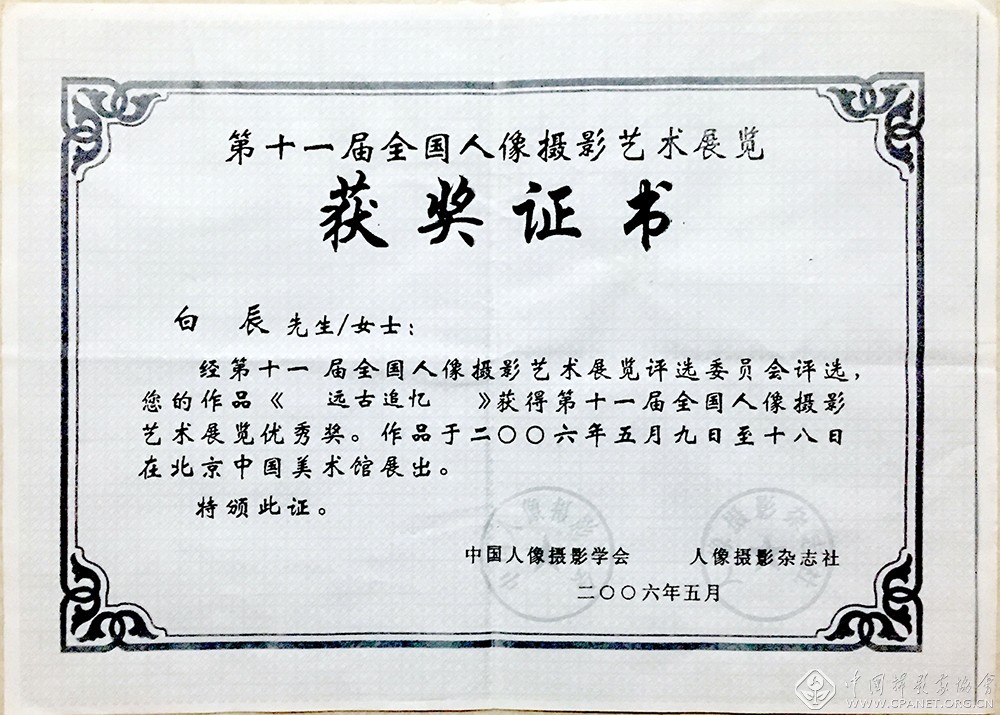 第十一届全国人像摄影艺术展览
获奖证书
白 辰 先生/女士：
经第十一届全国人像摄影艺术展览评选委员会评选，
您的作品《 远古追忆 》获得第十一届全国人像摄影
艺术展览优秀奖。作品于二〇〇六年五月九日至十八日
在北京中国美术馆展出。
特颁此证。
中国人像摄影学会 人像摄影杂志社
二〇〇六年五月
中国摄影家协会
WWW.CPANET.ORG.CN